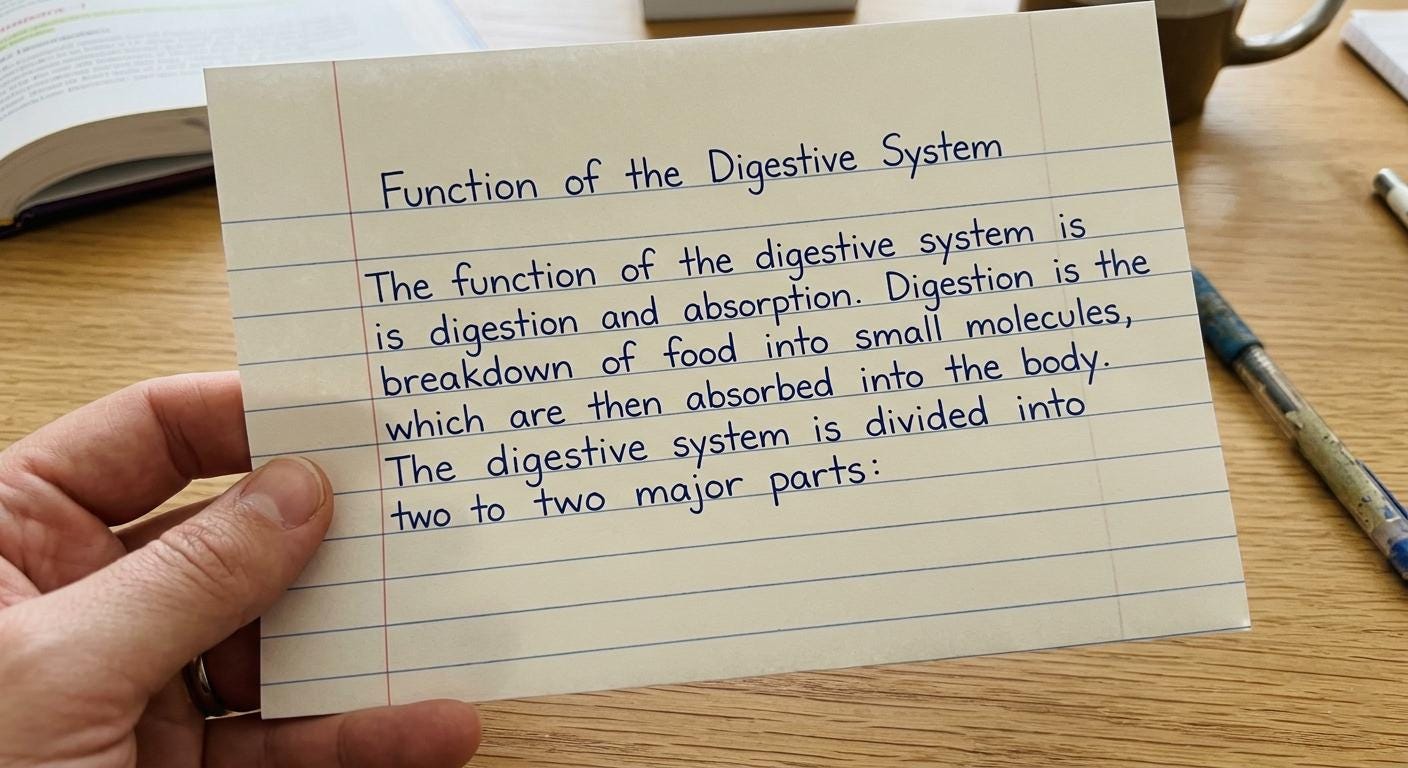 Function of the Digestive System
The function of the digestive system is
is digestion and absorption. Digestion is the
breakdown of food into small molecules,
which are then absorbed into the body.
The digestive system is divided into
two to two major parts: